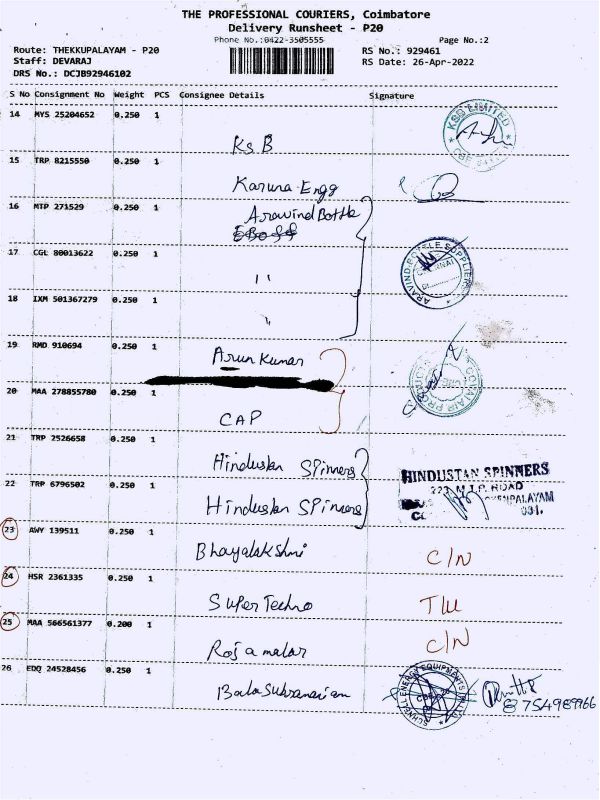 THE PROFESSIONAL COURIERS, Coimbatore
Delivery Runsheet - P20
Phone No.:0422-3505555 Page No.:2
Route: THEKKUPALAYAM - P20 RS No.: 929461
Staff: DEVARAJ RS Date: 26-Apr-2022
DRS No.: DCJB92946102
S No Consignment No Weight PCS Consignee Details Signature
14 MYS 25204652 0.250 1
KSB LIMITED
KsB
15 TRP 8215550 0.250 1
Karuna Engg
16 MTP 271529 0.250 1 Aravind Bottle
17 CGL 80013622 0.250 1
ARAVIND BOTTLE SUPPLIERS
ıı
18 IXM 501367279 0.250 1
19 RMD 910694 0.250 1
Arun Kumar
20 MAA 278855780 0.250 1
CAP
21 TRP 2526658 0.250 1
Hindustan SPinners HINDUSTAN SPINNERS
22 TRP 6796502 0.250 1
ROAD
Hindustan SPinners
23 AWY 139511 0.250 1
C/N
24 HSR 2361335 0.250 1
Super Techno
25 MAA 566561377 0.200 1
C/N
Rojamalar
26 EDQ 24528456 0.250 1
Balasubramaniam
8754989966